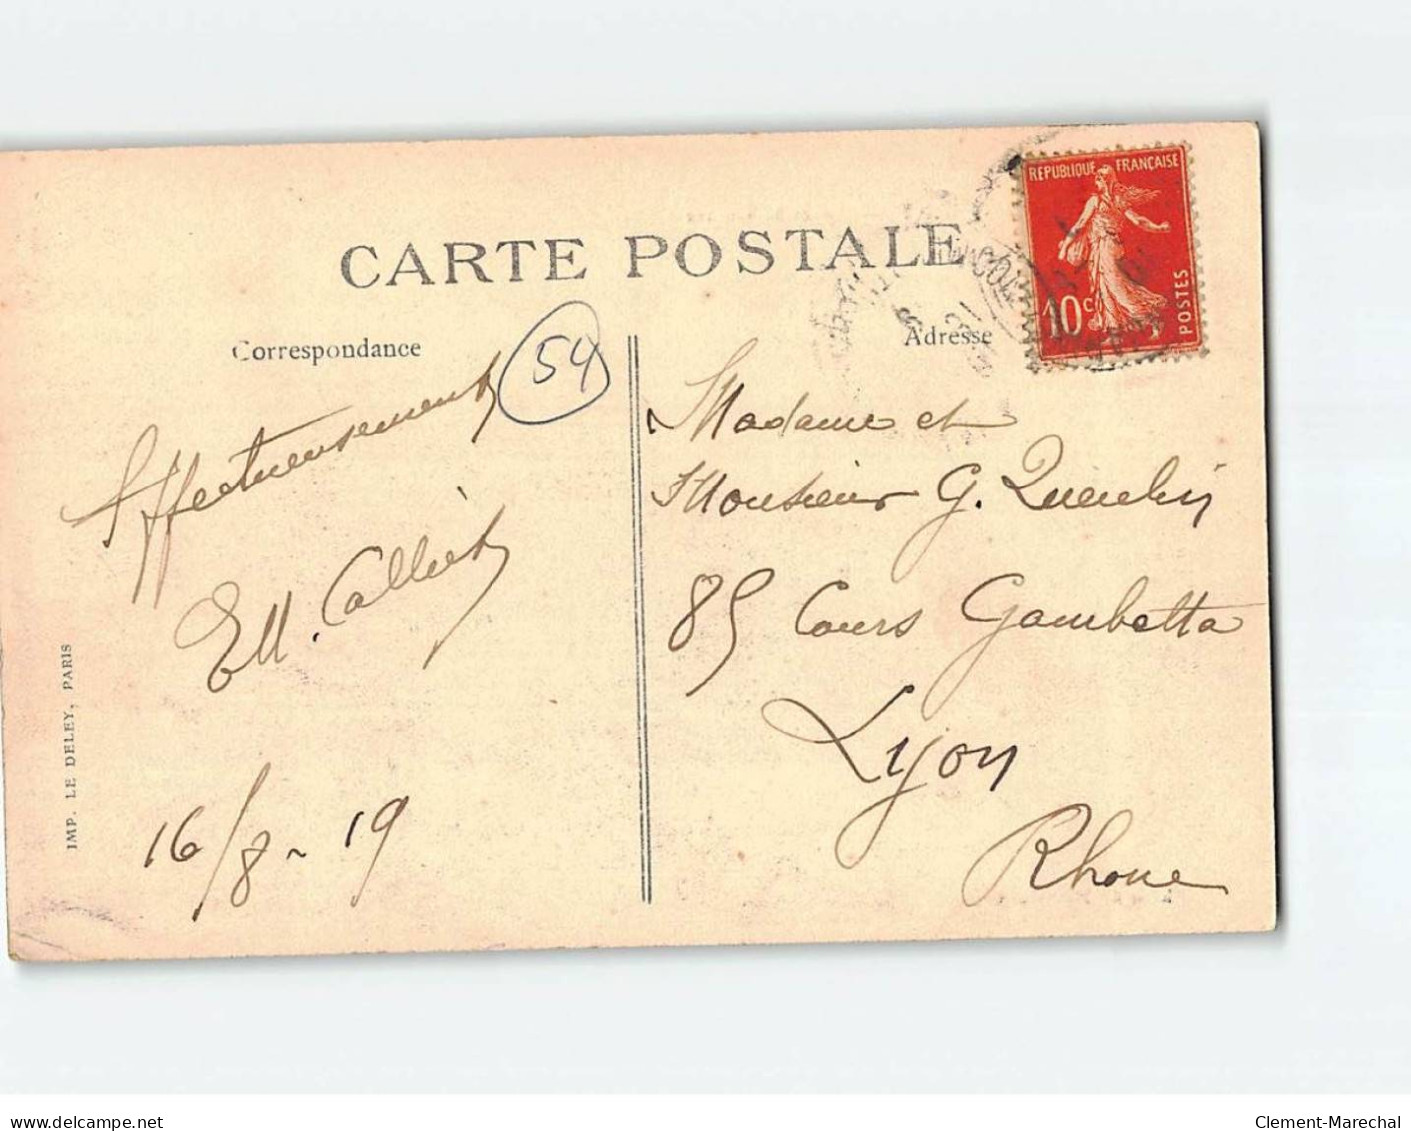 CARTE POSTALE
Correspondance
Adresse
54
RÉPUBLIQUE FRANÇAISE
10c
POSTES
Affectueusement
Ell.
16/8 - 19
Madame et
Monsieur G.
85 Cours Gambetta
Lyon
Rhone
IMP. LE DELEY, PARIS
www.delcampe.net
Clement-Marechal